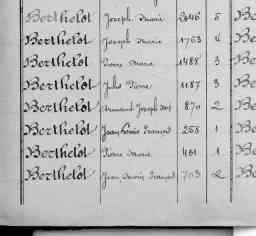 Berthelot Joseph Marie 2046 5 Be
Berthelot Joseph Marie 1763 4 Be
Berthelot Pierre Marie 1488 3 Be
Berthelot Jules Pierre 1187 3 Be
Berthelot Armand Joseph 870 2 Be
Berthelot Jean Louis François 258 1 Be
Berthelot Pierre Marie 461 1 Be
Berthelot Jean Marie François 703 2 Be